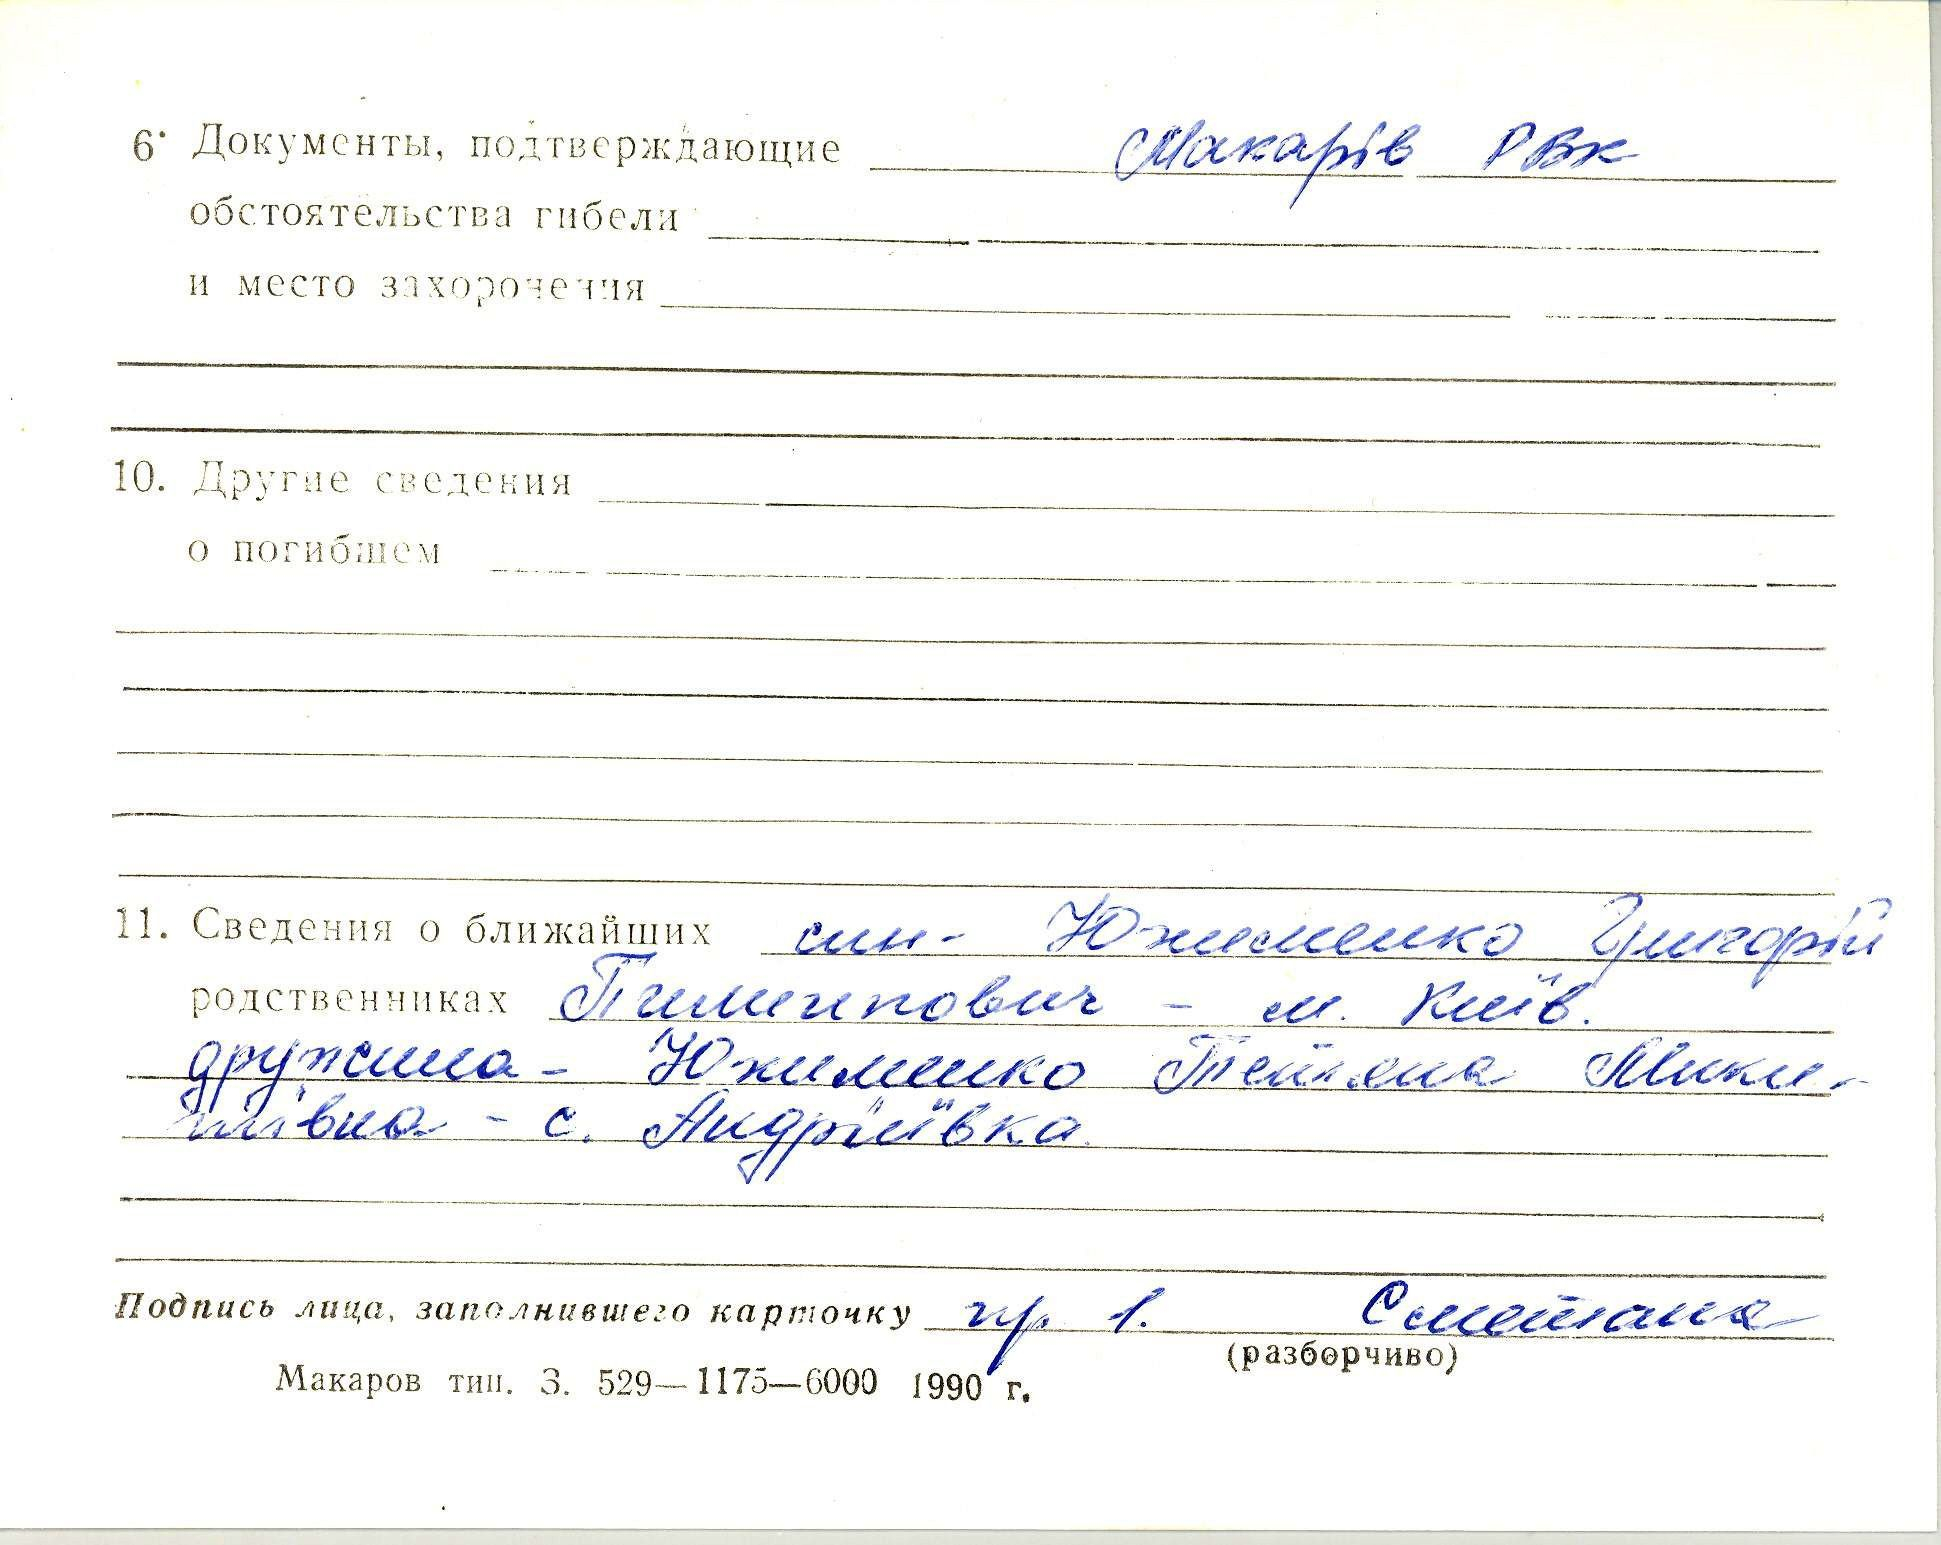 6. Документы, подтверждающие Макарів РВК
обстоятельства гибели
и место захоронения
10. Другие сведения
о погибшем
11. Сведения о ближайших син - Южименко Григорій
родственниках Пименович - м. Київ.
дружина - Южименко Тетяна Мики-
тівна - с. Андріївка.
Подпись лица, заполнившего карточку пр 1. Сметана
(разборчиво)
Макаров тип. З. 529—1175—6000 1990 г.